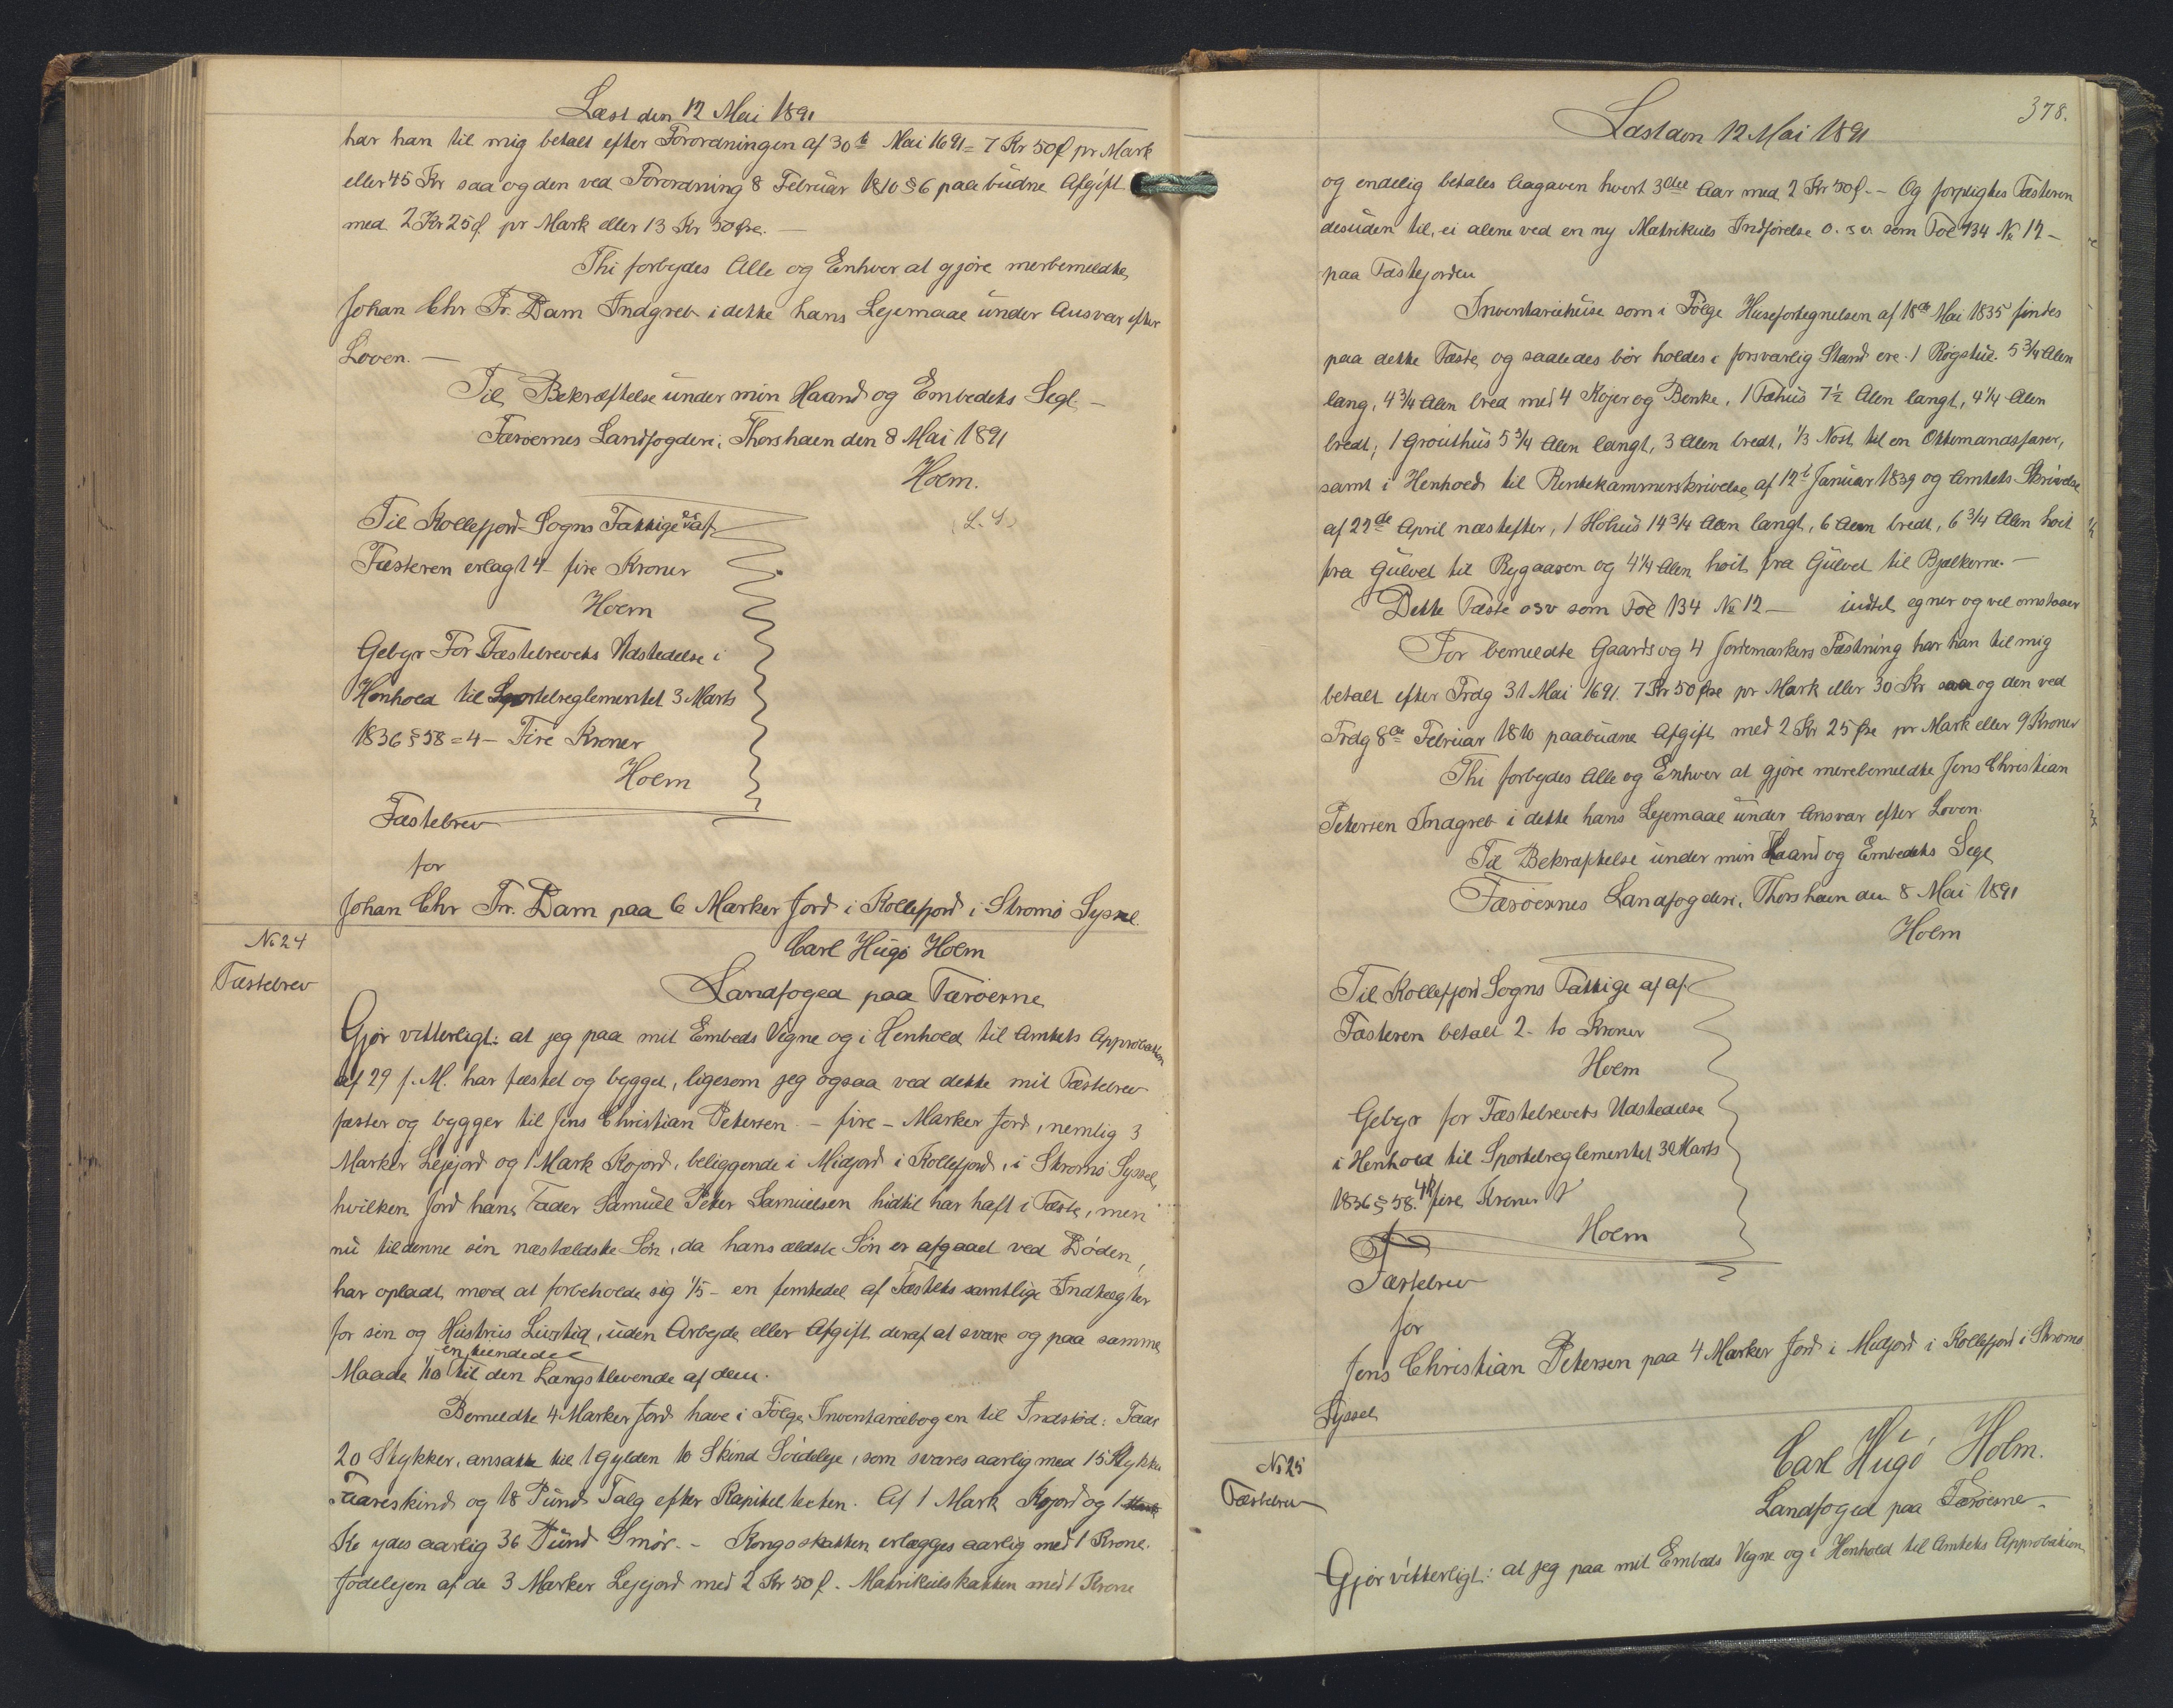 Læst den 12 Mai 1891
har han til mig betalt efter Forordningen af 30te Mai 1691 = 7 Kr 50 Ø pr Mark
eller 45 Kr saa og den ved Forordning 8 Februar 1810 § 6 paabudne Afgift
med 2 Kr 25 Ø pr Mark eller 13 Kr 50 Øre. —
Thi forbydes Alle og Enhver at gjøre merbemeldte
Johan Chr Fr. Dam Indgreb i dette hans Lejemaal under Ansvar efter
Loven. —
Til Bekræftelse under min Haand og Embedets Segl —
Færøernes Landfogderi, Thorshavn den 8 Mai 1891
Holm.
(L. S.)
Til Kollefjord Sogns Fattige er af
Fæsteren erlagt 4 – fire Kroner
Holm
Gebyr For Fæstebrevets Udstedelse i
Henhold til Sportelreglementet 3 Marts
1836 § 58 = 4 – Fire Kroner
Holm
Fæstebrev
for
Johan Chr Fr. Dam paa 6 Marker Jord i Kollefjord i Strømø Syssel.
No 24
Fæstebrev
Carl Hugo Holm
Landfoged paa Færøerne
Gjør vitterligt: at jeg paa mit Embeds Vegne og i Henhold til Amtets Approbation
af 29 f. M. har fæstet og bygget, ligesom jeg ogsaa ved dette mit Fæstebrev
fæster og bygger til Jens Christian Petersen – fire – Marker Jord, nemlig 3
Marker Lejejord og 1 Mark Kojord, beliggende i Midjord i Kollefjord, i Strømø Syssel,
hvilken Jord hans Fader Samuel Peter Samuelsen hidtil har haft i Fæste, men
nu til denne sin næstældste Søn, da hans ældste Søn er afgaaet ved Døden,
har opladt mod at forbeholde sig 1/5 – en femtedel af Fæstets samtlige Indtægter
for sin og Hustrus Livstid, uden Arbejde eller Afgift deraf at svare og paa samme
en tiendedel
Maade 1/10 til den Længstlevende af dem.
Bemeldte 4 Marker Jord have i Følge Inventariebogen til Indstød: Faar
20 Stykker, ansatte til 1 Gylden 10 Skind Soideleje, som svares aarlig med 15 Stykker
Faareskind og 18 Pund Talg efter Kapitelstaxten. Af 1 Mark Kojord og 1 Mark
Ko ydes aarlig 36 Pund Smør. – Kongsskatten erlægges aarlig med 1 Krone.
Jodelejen af de 3 Marker Lejejord med 2 Kr 50 Ø. Matrikulskatten med 1 Krone
378.
Læst den 12 Mai 1891
og endelig betales Aagaven hvert 3die Aar med 2 Kr 50 Ø. – Og forpligtes Fæsteren
desuden til, ei alene ved en ny Matrikuls Indførelse o. s v. som Fol 134 No 12 –
paa Fæstejorden
Inventariehuse som i Følge Husefortegnelsen af 18de Mai 1835 findes
paa dette Fæste, og saaledes bør holdes i forsvarlig Stand ere. 1 Røgstue. 5 3/4 Alen
lang, 4 3/4 Alen bred med 4 Kojer og Benke, 1 Fæhus 7 1/2 Alen langt, 4 1/4 Alen
bredt, 1 Grouthus 5 3/4 Alen langt, 3 Alen bredt, 1/3 Nøst til en Ottemandsfarer,
samt i Henhold til Rentekammerskrivelse af 12t Januar 1839 og Amtets Skrivelse
af 22de April næstefter, 1 Hohus 14 3/4 Alen langt, 6 Alen bredt, 6 3/4 Alen høit
fra Gulvet til Rygaasen og 4 1/4 Alen høit fra Gulvet til Bjælkerne. —
Dette Fæste osv som Fol 134 No 12 — indtil egner og vel omstaaer
For bemeldte Gaards og 4 Jordemarkers Fæstning har han til mig
betalt efter Frdg 31 Mai 1691. 7 Kr 50 Øre pr Mark eller 30 Kr saa og den ved
Frdg 8de Februar 1810 paabudne Afgift med 2 Kr 25 Øre pr Mark eller 9 Kroner
Thi forbydes Alle og Enhver at gjøre merebemeldte Jens Christian
Petersen Indgreb i dette hans Lejemaal under Ansvar efter Loven.
Til Bekræftelse under min Haand og Embedets Segl
Færøernes Landfogderi, Thorshavn den 8 Mai 1891
Holm
Til Kollefjord Sogns Fattige af af
Fæsteren betalt 2 – to Kroner
Holm
Gebyr for Fæstebrevets Udstedelse
i Henhold til Sportelreglementet 3 Marts
1836 § 58. 4 Kr fire Kroner
Holm
Fæstebrev
for
Jens Christian Petersen paa 4 Marker Jord i Midjord i Kollefjord i Strømø
Syssel
No 25
Fæstebrev
Carl Hugo Holm.
Landfoged paa Færøerne
Gjør vitterligt: at jeg paa mit Embeds Vegne og i Henhold til Amtets Approbation